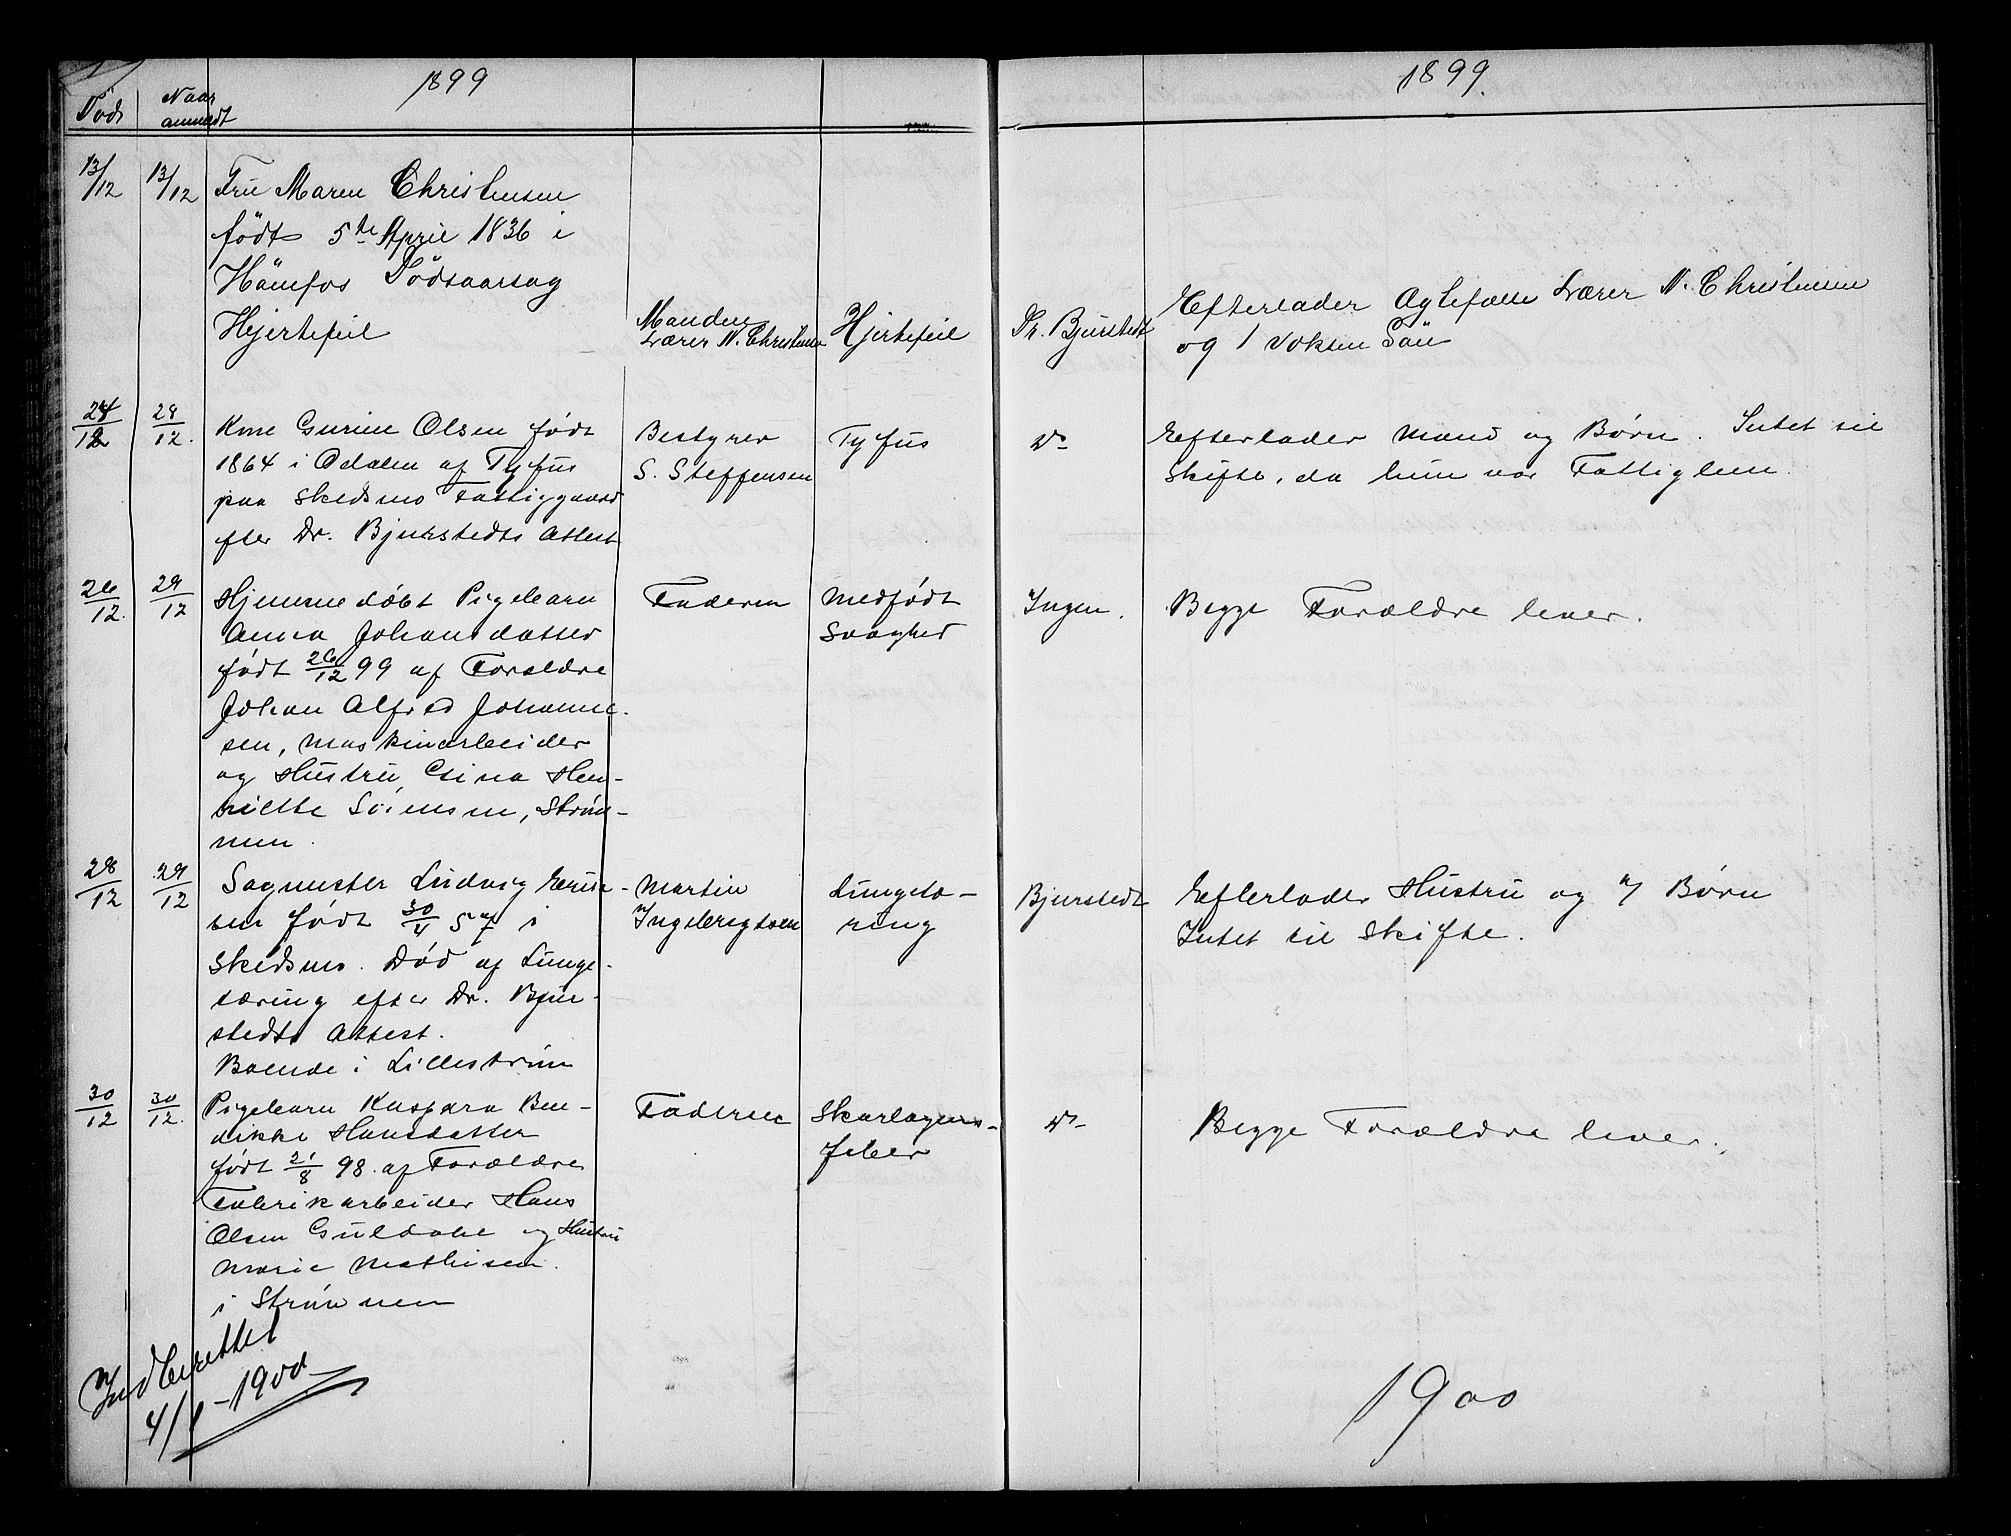 1899
1899.
Død
Naar
anmeldt
13/12
13/12
Fru Maren Christensen
født 5te April 1836 i
Hönefos Dödsaarsag
Hjertefeil
Manden
Lærer N. Christensen
Hjertefeil
Dr. Bjurstedt
Efterlader Ægtefælle Lærer N. Christensen
og 1 voksen Sön
24/12
28/12.
Kone Gurine Olsen født
1864 i Odalen af Tyfus
paa Skedsmo Fattiggaard
efter Dr. Bjurstedts Attest
Bestyrer
S. Steffensen
Tyfus
Do
Efterlader Mand og Børn. Intet til
Skifte, da hun var Fattiglem.
26/12.
29/12
Hjemmedøbt Pigebarn
Anna Johansdatter
født 26/12 99 af Forældre
Johan Alfred Johanne-
sen, Maskinarbeider
og Hustru Gina Hen-
riette Sörensen, Ström-
men.
Faderen
Medfødt
Svaghed
Ingen.
Begge Forældre lever.
28/12
29/12
Sagmester Ludvig
sen født 30/4 57 i
Skedsmo. Død af Lunge-
tæring efter Dr. Bjur-
stedts Attest.
Boende i Lilleström
Martin
Ingebrigtsen
Lungetæ-
ring
Bjurstedt
Efterlader Hustru og 7 Børn
Intet til Skifte.
30/12
30/12.
Pigebarn Kaspara Ben-
dikke Hansdatter
født 21/8 98. af Forældre
Fabrikarbeider Hans
Olsen Guldahl og Hustru
Marie Mathisen.
i Strömmen
Faderen
Skarlagens-
feber
Do
Begge Forældre lever.
Indberettet
4/1-1900
1900